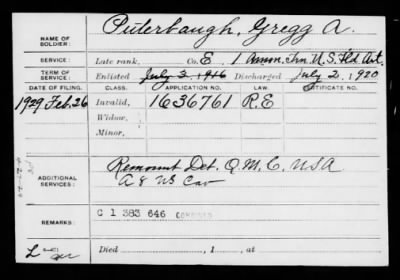 NAME OF SOLDIER: Puterbaugh, Gregg A.
SERVICE: Late rank, Co. E, 1 Amm. Trn. U.S. Fld Art.
TERM OF SERVICE: Enlisted July 3, 1916 Discharged July 2, 1920
DATE OF FILING. CLASS. APPLICATION NO. LAW. CERTIFICATE NO.
1929 Feb. 26 Invalid, 1636761 R.E
Widow,
Minor,
ADDITIONAL SERVICES: Remount Det. Q.M.C. USA
A 8 US Cav
REMARKS: C 1 383 646 COMBINED
Died , 1 , at